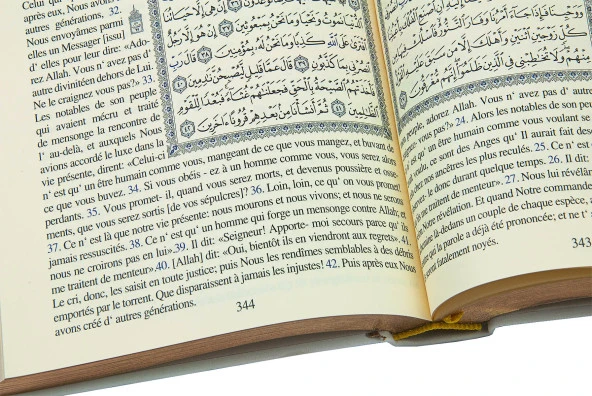 après eux. Nous avons
autres générations. 32.
Nous envoyâmes parmi
elles un Messager [issu]
d' elles pour leur dire: «Ado-
rez Allah. Vous n' avez pas d'
autre divinitéen dehors de Lui.
Ne le craignez vous pas?» 33.
Les notables de son peuple
qui avaient mécru et traité
de mensonge la rencontre de
l' au-delà, et auxquels Nous
avions accordé le luxe dans la
إِنْ هِيَ إِلَّا حَيَاتُنَا
الدُّنْيَا نَمُوتُ وَنَحْيَا وَمَا نَحْنُ بِمَبْعُوثِينَ ٣٧ إِنْ هُوَ إِلَّا رَجُلٌ
افْتَرَىٰ عَلَى اللَّهِ كَذِبًا وَمَا نَحْنُ لَهُ بِمُؤْمِنِينَ ٣٨ قَالَ رَبِّ
انصُرْنِي بِمَا كَذَّبُونِ ٣٩ قَالَ عَمَّا قَلِيلٍ لَّيُصْبِحُنَّ نَادِمِينَ ٤٠
فَأَخَذَتْهُمُ الصَّيْحَةُ بِالْحَقِّ فَجَعَلْنَاهُمْ غُثَاءً فَبُعْدًا لِّلْقَوْمِ
الظَّالِمِينَ ٤١ ثُمَّ أَنشَأْنَا مِن بَعْدِهِمْ قُرُونًا آخَرِينَ ٤٢
vie présente, dirent: «Celui-ci
n' est qu' un être humain comme vous, mangeant de ce que vous mangez, et buvant de
ce que vous buvez. 34. Si vous obéis - ez à un homme comme vous, vous serez alors
perdants. 35. Vous promet- il, quand vous serez morts, et devenus poussière et osse-
ments, que vous serez sortis [de vos sépulcres]? 36. Loin, loin, ce qu' on vous promet!
37. Ce n' est là que notre vie présente: nous mourons et nous vivons; et nous ne serons
jamais ressuscités. 38. Ce n' est qu' un homme qui forge un mensonge contre Allah; et
nous ne croirons pas en lui».39. Il dit: «Seigneur! Apporte- moi secours parce qu' ils
me traitent de menteur».40. [Allah] dit: «Oui, bientôt ils en viendront aux regrets». 41.
Le cri, donc, les saisit en toute justice; puis Nous les rendîmes semblables à des débris
emportés par le torrent. Que disparaissent à jamais les injustes! 42. Puis après eux Nous
avons créé d' autres générations.
344
وَوَحْيِنَا فَإِذَا جَاءَ أَمْرُنَا وَفَارَ التَّنُّورُ
كُلٍّ زَوْجَيْنِ اثْنَيْنِ وَأَهْلَكَ إِلَّا مَن سَبَقَ عَلَيْهِ
مِنْهُمْ وَلَا تُخَاطِبْنِي فِي الَّذِينَ ظَلَمُوا إِنَّهُم مُّغْرَقُونَ
peuple, adorez Allah. Vous n' avez pas d' autre
vous pas?». 24. Alors les notables de son peu
qu' un être humain comme vous voulant se
ce sont des Anges qu' Il aurait fait desc
chez nos ancêtres les plus reculés. 25. Ce n' est
donc durant quelque temps. 26. Il dit:
me traitent de menteur». 27. Nous lui révélâm
Notre Révélation. Et quand Notre commande
là-dedans un couple de chaque espèce, a
la parole a déjà été prononcée; et ne t'
fatalement noyés.
343